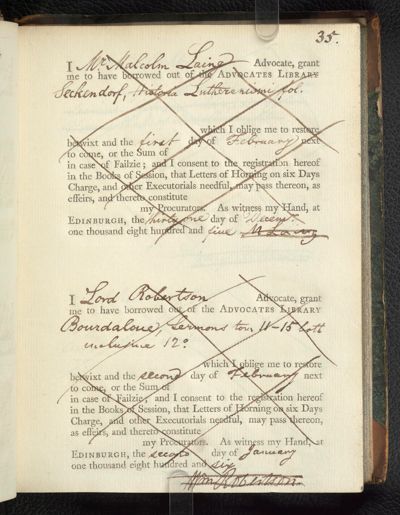 35.
I Mr Malcolm Laing Advocate, grant
me to have borrowed out of the ADVOCATES LIBRARY
Seckendorf, Historia Lutheranismi fol.
which I oblige me to restore
betwixt and the first day of February next
to come, or the Sum of
in case of Failzie; and I consent to the registration hereof
in the Books of Session, that Letters of Horning on six Days
Charge, and other Executorials needful, may pass thereon, as
effeirs, and thereto constitute
my Procurators. As witness my Hand, at
EDINBURGH, the thirty one day of Decemr.
one thousand eight hundred and five
I Lord Robertson Advocate, grant
me to have borrowed out of the ADVOCATES LIBRARY
Bourdaloue, Sermons tom 11-15 both
inclusive 12o
which I oblige me to restore
betwixt and the second day of February next
to come, or the Sum of
in case of Failzie; and I consent to the registration hereof
in the Books of Session, that Letters of Horning on six Days
Charge, and other Executorials needful, may pass thereon,
as effeirs, and thereto constitute
my Procurators. As witness my Hand, at
EDINBURGH, the second day of January
one thousand eight hundred and six
Wm Robertson